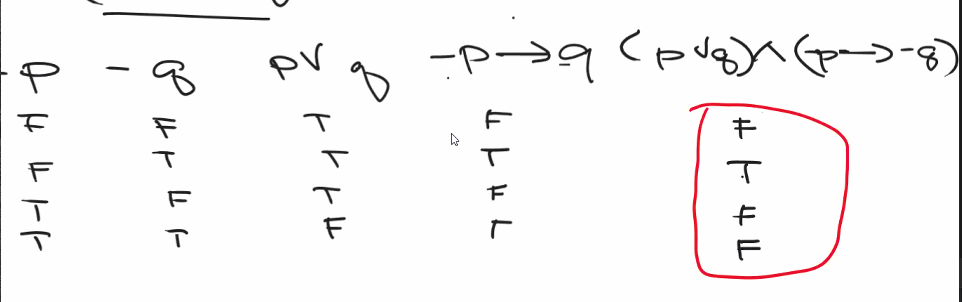 -p -q p∨q -p→q (p∨q)∧(p→-q)
F F T F F
F T T T T
T F T F F
T T F T F